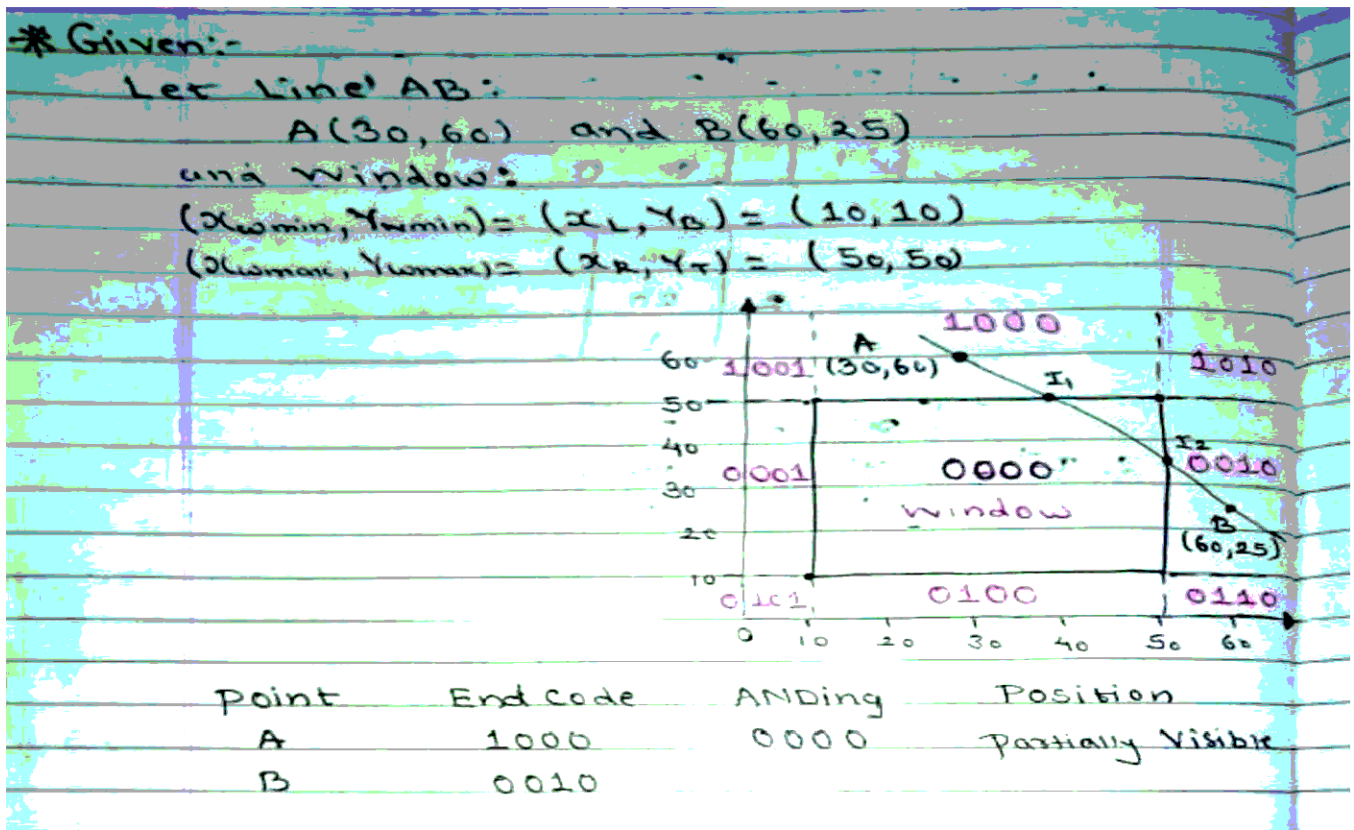 * Given:-
Let Line' AB:
A(30,60) and B(60,25)
and window:
(xwmin, Ywmin)= (xL, YB) = (10,10)
(xwmax, Ywmax)= (xR, YT) = (50,50)
1000
A
60 1001 (30,60) 1010
I1
50
40 I2
0001 0000 0010
30
window
20 B
(60,25)
10
0101 0100 0110
0 10 20 30 40 50 60
Point End Code ANDing Position
A 1000 0000 Partially Visible
B 0010